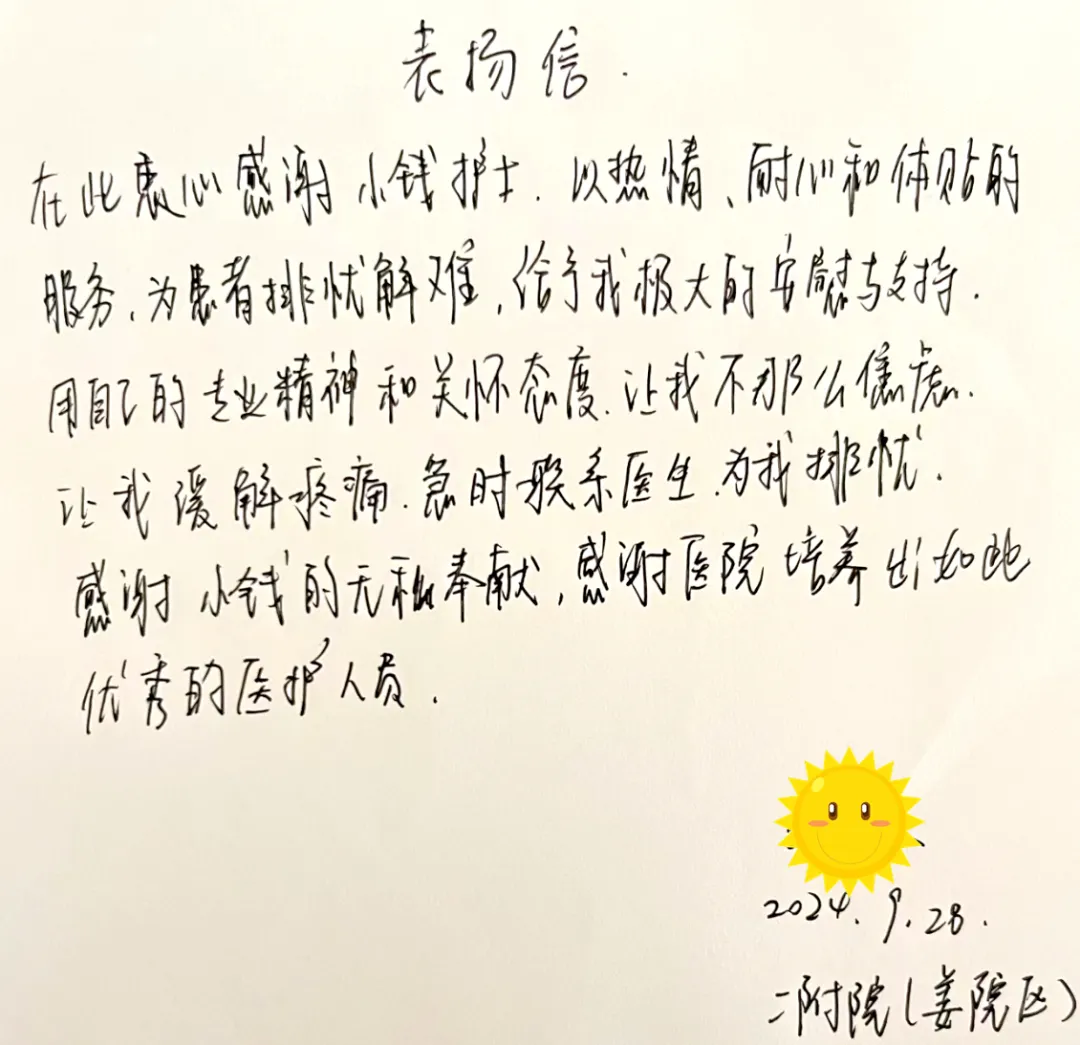 表扬信.
在此衷心感谢小钱护士.以热情、耐心和体贴的
服务,为患者排忧解难,给予我极大的安慰与支持.
用自己的专业精神和关怀态度.让我不那么焦虑.
让我缓解疼痛.急时联系医生.为我排忧.
感谢小钱的无私奉献,感谢医院培养出如此
优秀的医护人员.
2024.9.28.
二附院(姜院区)